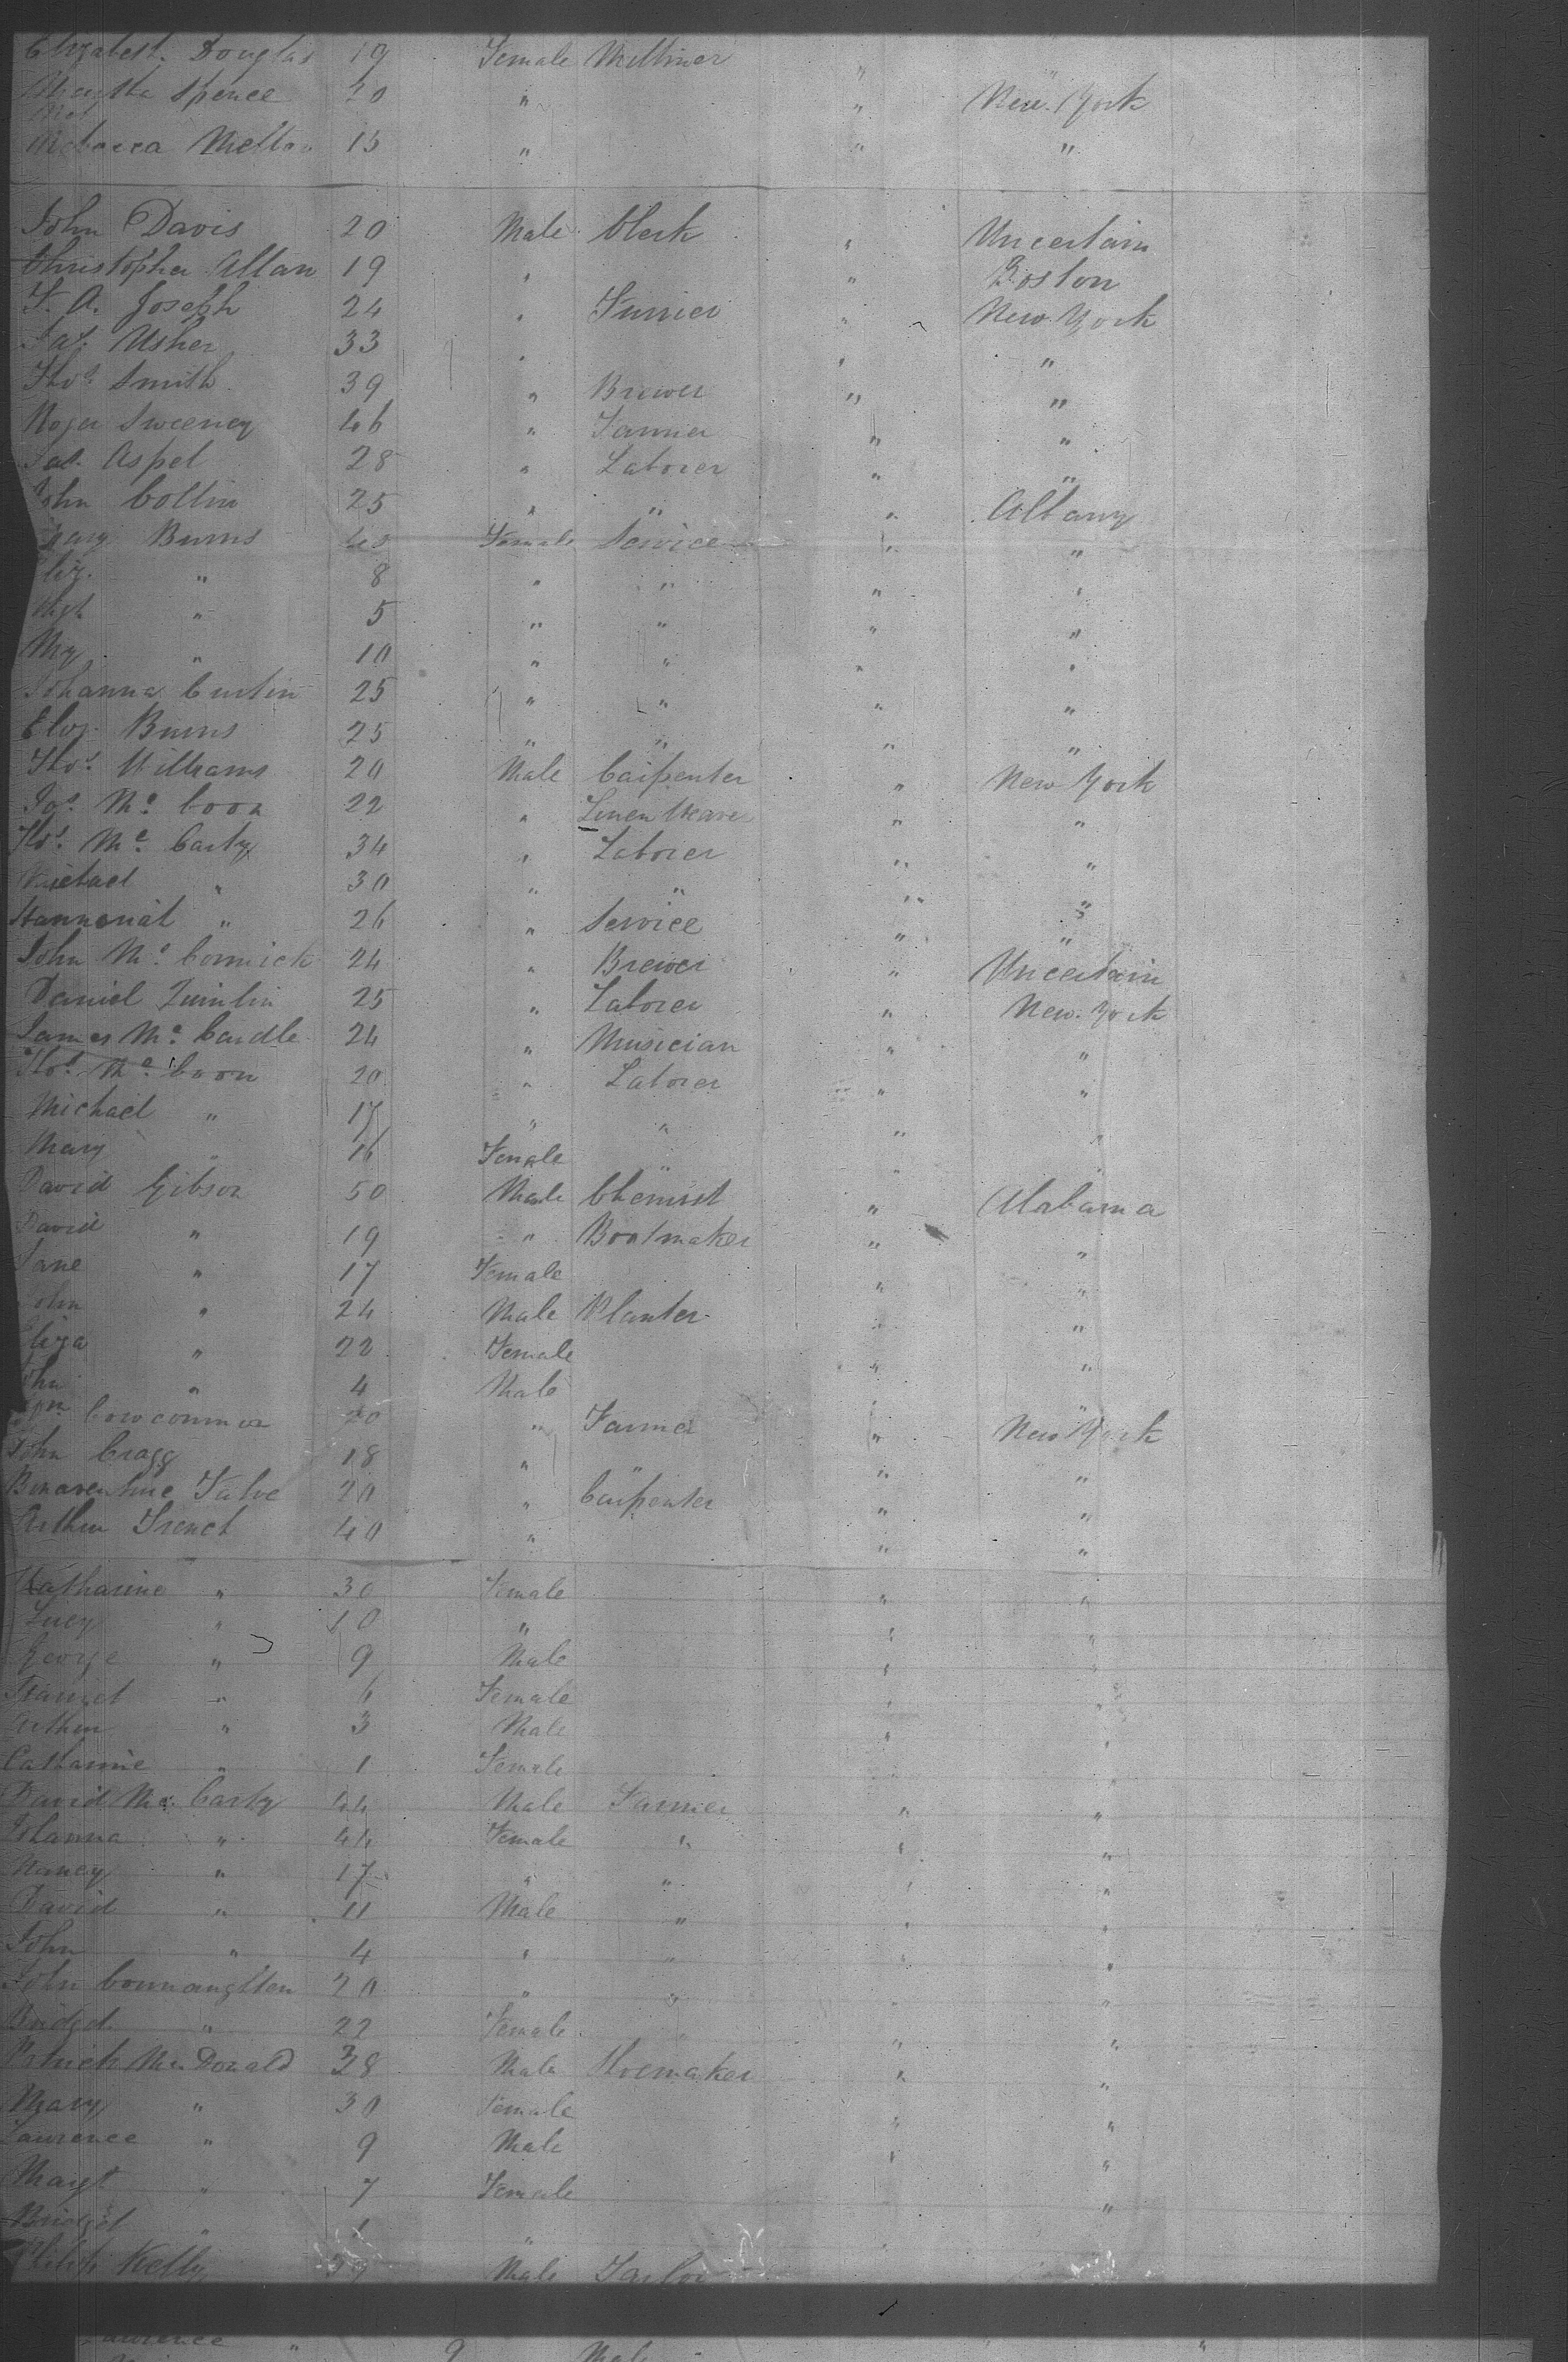 Elizabeth Douglas 19 Female Milliner "
Martha Spence 20 " " New York
Rebecca Melton 15 " " "
John Davis 20 Male Clerk " Uncertain
Christopher Allan 19 " " Boston
F. A. Joseph 24 " Furrier " New York
Jas. Usher 33 " " "
Thos. Smith 39 " Brewer " "
Roger Sweeney 46 " Farmer " "
Jas. Aspel 28 " Laborer " "
John Collin 25 " " " Albany
Mary Burns 45 Female Service " "
Eliz. " 8 " " " "
Mgt " 5 " " " "
My " 10 " " " "
Johanna Curtin 25 " " " "
Eliz. Burns 25 " " " "
Thos. Williams 20 Male Carpenter " New York
Jas. Mc. Coon 22 " Linen Weaver " "
Thos. Mc. Carty 34 " Laborer " "
Michael " 30 " " " "
Hannoriat " 26 " Service " "
John Mc. Cormick 24 " Brewer " Uncertain
Daniel Quinlin 25 " Laborer " New York
James Mc. Cardle 24 " Musician " "
Thos. Mc. Coon 20 " Laborer " "
Michael " 17 " " " "
Mary " 16 Female " " "
David Gibson 50 Male Chemist " Alabama
David " 19 " Bootmaker " "
Jane " 17 Female " "
John " 24 Male Planter " "
Eliza " 22 Female " "
John " 4 Male " "
20 " Farmer " New York
John Cragg 18 " " " "
Bonaventure 20 " Carpenter " "
Arthur French 40 " " "
Katharine " 30 Female " "
Lucy " 10 " " "
George " 9 Male " "
Harriet " 6 Female " "
Arthur " 3 Male " "
Catharine " 1 Female "
David Mc. Carty 44 Male Farmer " "
Johanna " 44 Female " " "
Nancy " 17 " " " "
David " 11 Male " " "
John " 4 " " " "
John Connaughten 20 " " " "
Bridget " 22 Female " "
Patrick Mc. Donald 38 Male Shoemaker " "
Mary " 30 Female " "
Lawrence " 9 Male " "
Margt " 7 Female "
Bridget " 1 " "
Philip Kelly Male Taylor
Lawrence " 9 Male " "